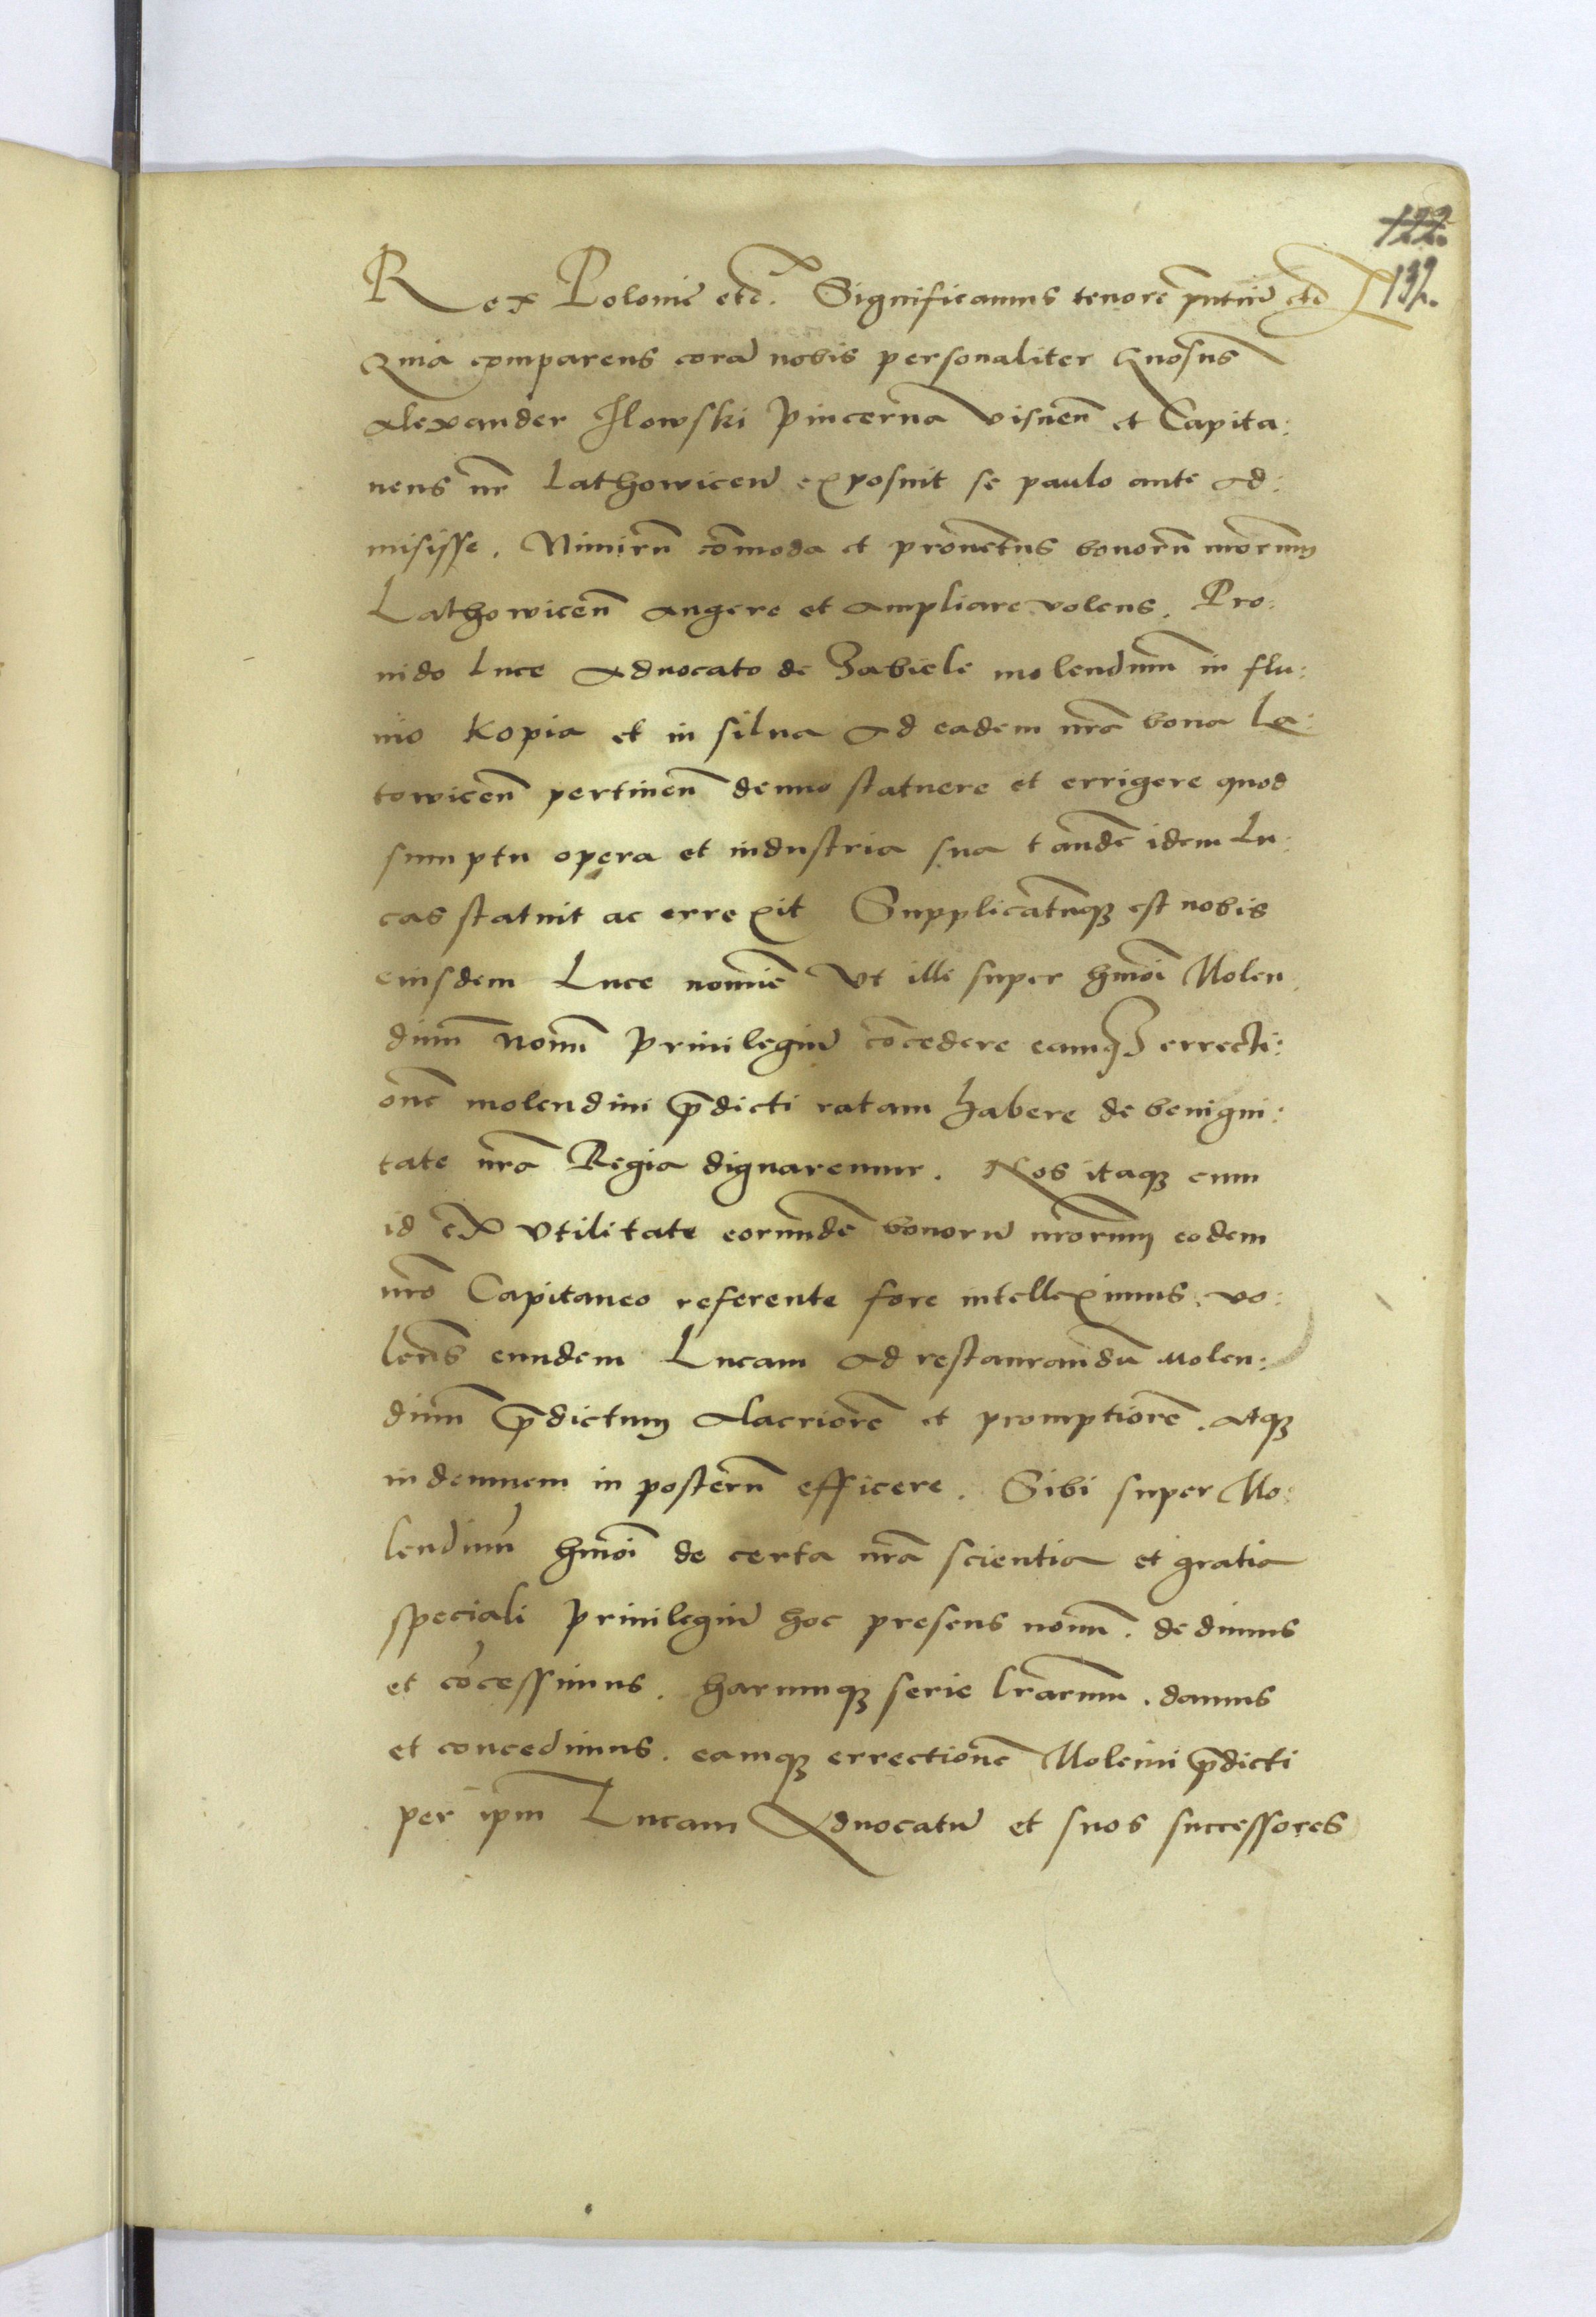 122.
132.
Rex Polonie etc. Significamus tenorē pñtiū etc
Quia comparens corā nobis personaliter Gnosus
Alexander Ilowski Pincerna Visneñ et Capita:
neus nr̄ Lathowiceñ exposuit se paulo ante ad:
misisse. Nimirū cōmoda et prouētus bonorū nrorum
Lathowiceñ augere et ampliare volens. Pro:
uido Luce Aduocato de Zabiele molendinū in flu:
uio Kopia et in silua ad eadem nrā bona La:
towiceñ pertineñ denuo statuere et errigere quod
sumptu opera et industria sua tandē idem Lu:
cas statuit ac errexit Supplicatūq3 est nobis
eiusdem Luce nomīe Vt illi super hmōi Molen
dinū nouū Priuilegiū cōcedere eamq3 errecti:
onē molendini p̄dicti ratam habere de benigni:
tate nrā Regia dignaremur. Nos itaq3 cum
id ex Vtilitate eorundē bonorū nrorum eodem
nrō Capitaneo referente fore intelleximus. vo:
lētes eundem Lucam ad restaurandū Molen:
dinū p̄dictum alacriorē et promptiorē. atq3
indemnem in posterū efficere. Sibi super Mo:
lendinū hmōi de certa nrā scientia et gratia
speciali Priuilegiū hoc presens nouū. dedimus
et cōcessimus. harumq3 serie lrārum. damus
et concedimus. eamq3 errectionē Molēini p̄dicti
per ipm̄ Lucam Aduocatū et suos successores